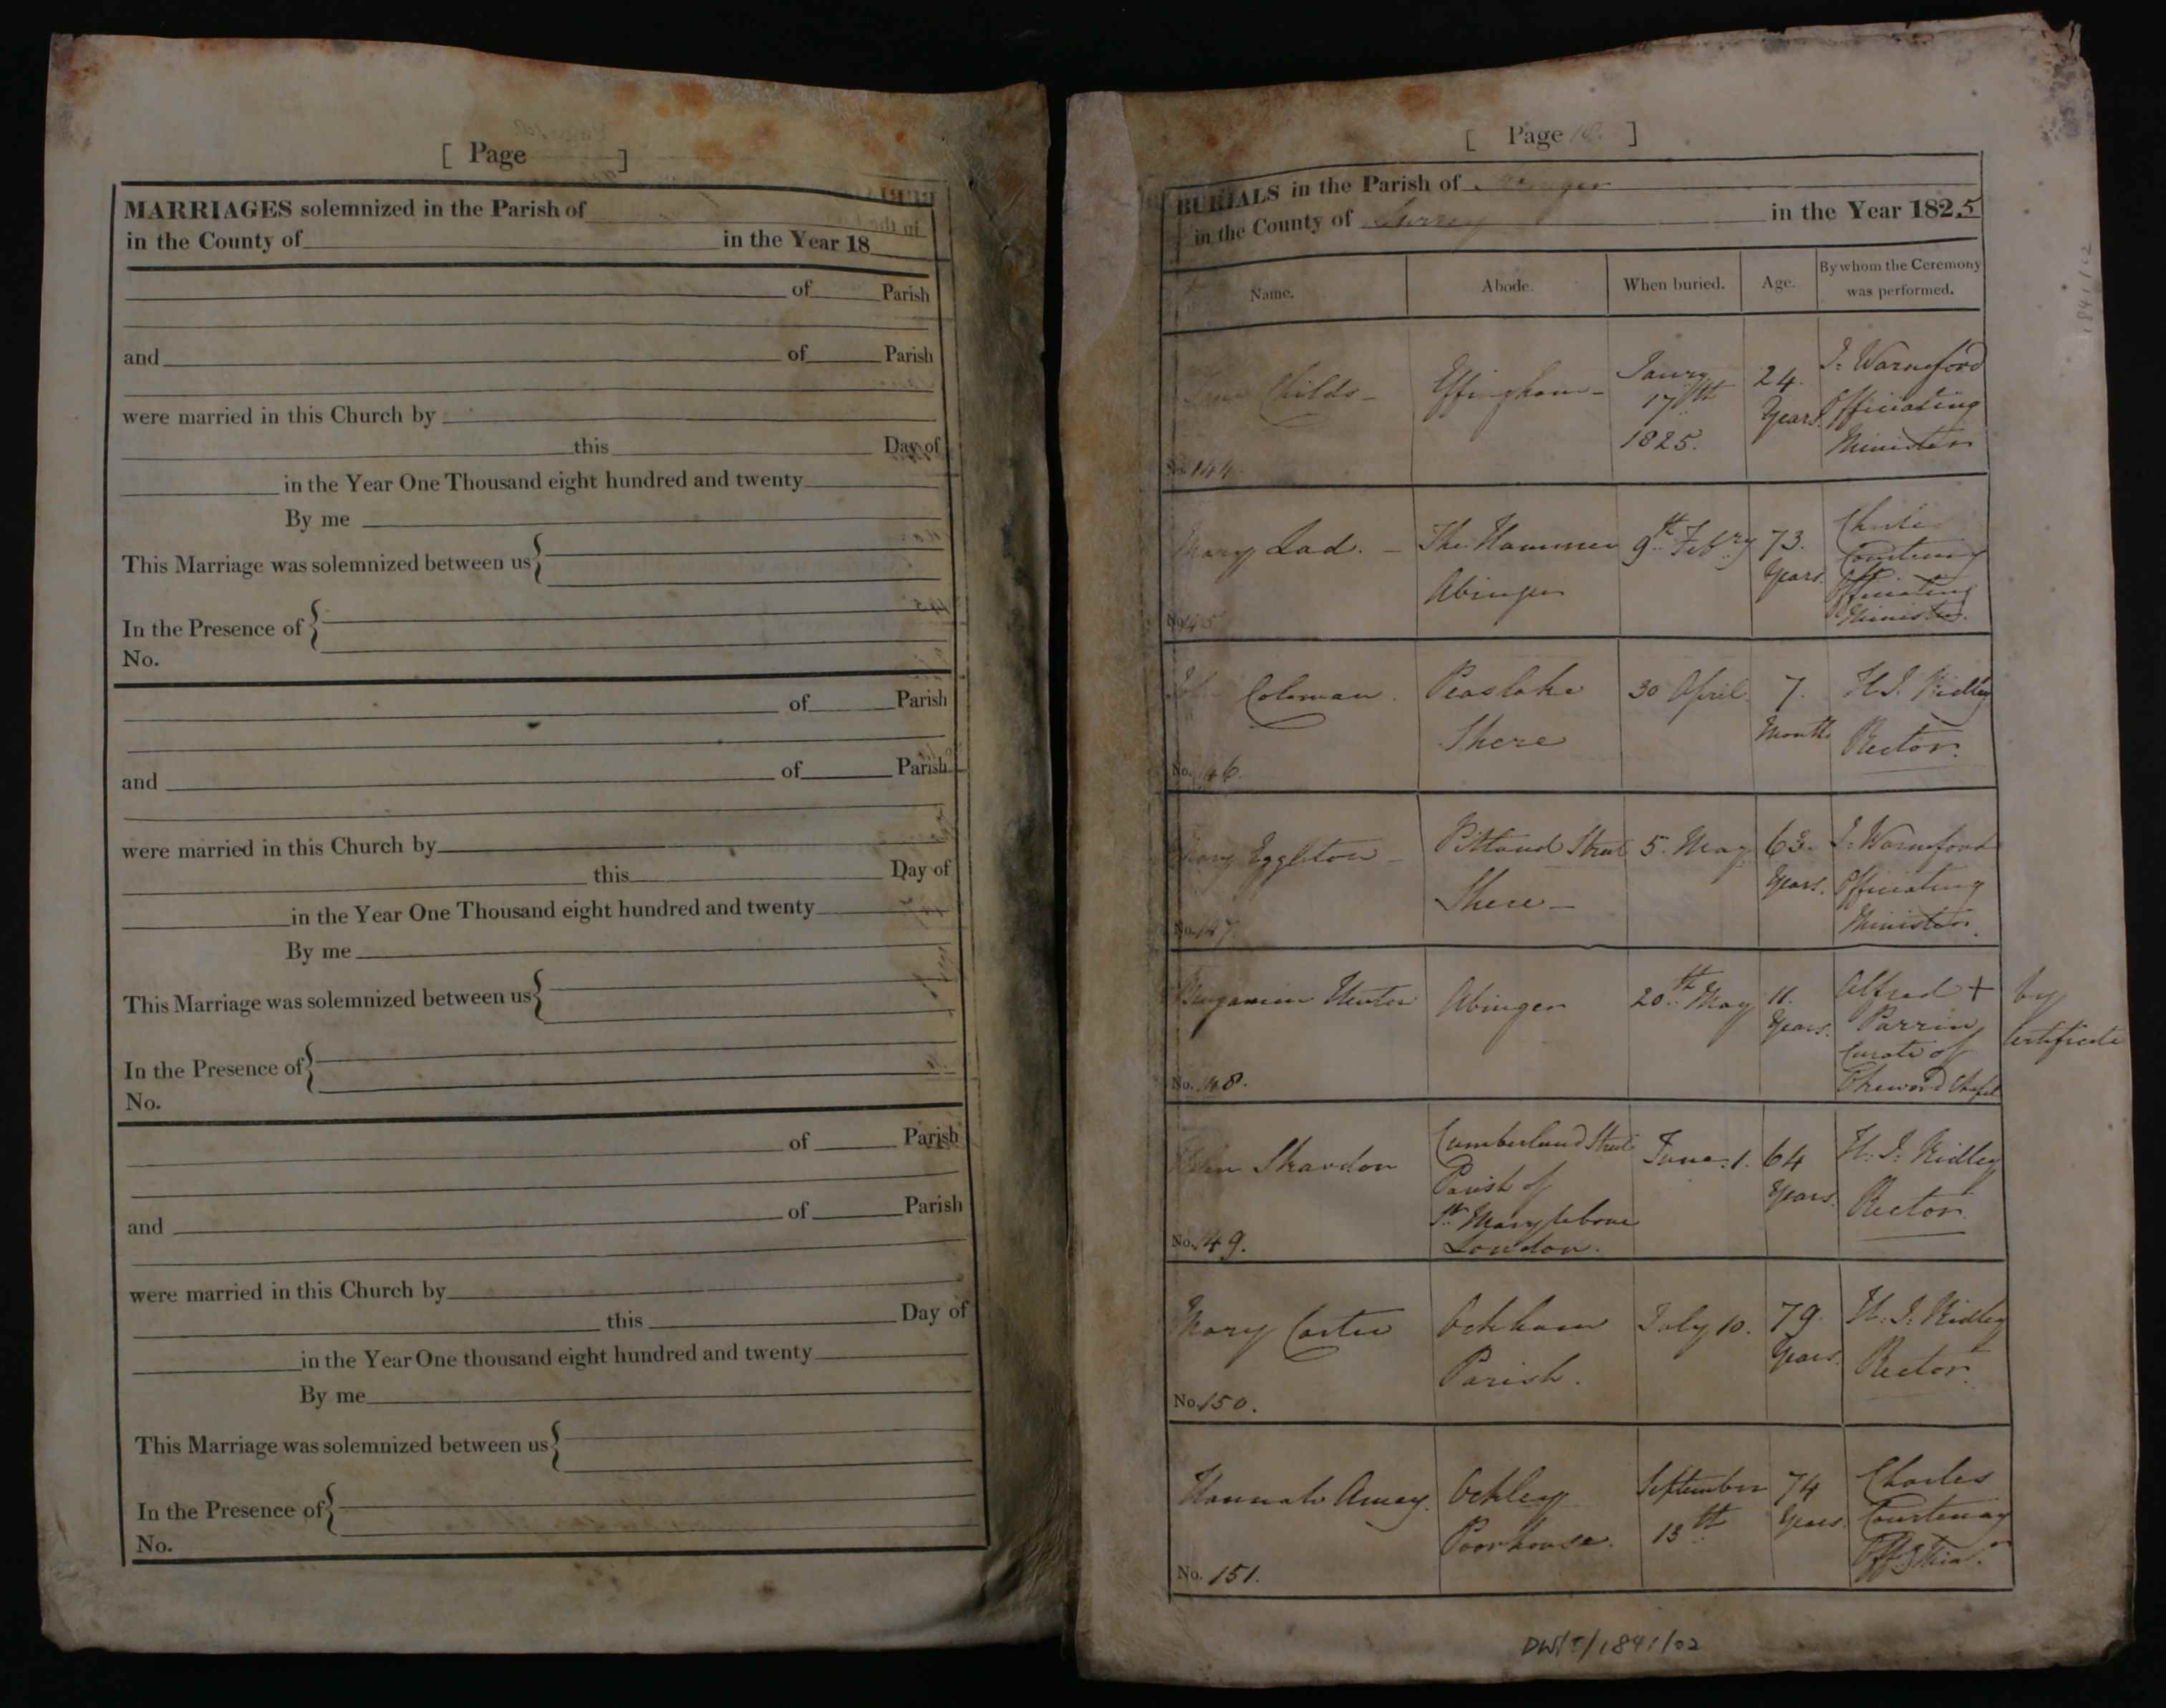 [ Page ]
MARRIAGES solemnized in the Parish of
in the County of in the Year 18
of Parish
and of Parish
were married in this Church by
this Day of
in the Year One Thousand eight hundred and twenty
By me
This Marriage was solemnized between us
In the Presence of
No.
of Parish
and of Parish
were married in this Church by
this Day of
in the Year One Thousand eight hundred and twenty
By me
This Marriage was solemnized between us
In the Presence of
No.
of Parish
and of Parish
were married in this Church by
this Day of
in the Year One thousand eight hundred and twenty
By me
This Marriage was solemnized between us
In the Presence of
No.
[ Page ]
BURIALS in the Parish of Abinger
in the County of Surrey in the Year 1825
Name. Abode. When buried. Age. By whom the Ceremony
was performed.
Childs - Effingham - Janry 24. J. Warneford
17th Years. Officiating
1825. Minister
No. 144.
Mary Lad. - The Hammer 9th Febry 73. Charles
Abinger Years. Courtenay
Officiating
Minister.
No. 145
John Coleman. Peaslake 30 April 7. H. J. Ridley
Shere Months Rector.
No. 146.
Mary Eggleton - Street 5. May 63. J. Warneford
Shere - Years. Officiating
Minister.
No. 147.
Benjamin Abinger 20th May 11. Alfred + by
Years. Perring Certificate
Curate of
Okewood Chapel
No. 148.
Shardon Cumberland Street June 1. 64 H. J. Ridley
Parish of Years. Rector.
St. Marylebone
London.
No. 149.
Mary Carter Ockham July 10. 79. H. J. Ridley
Parish. Years. Rector.
No. 150.
Hannah Amey. Ockley September 74 Charles
Poorhouse. 13th Years. Courtenay
Offg Minr.
No. 151.
DW/T/1841/02
1841/02